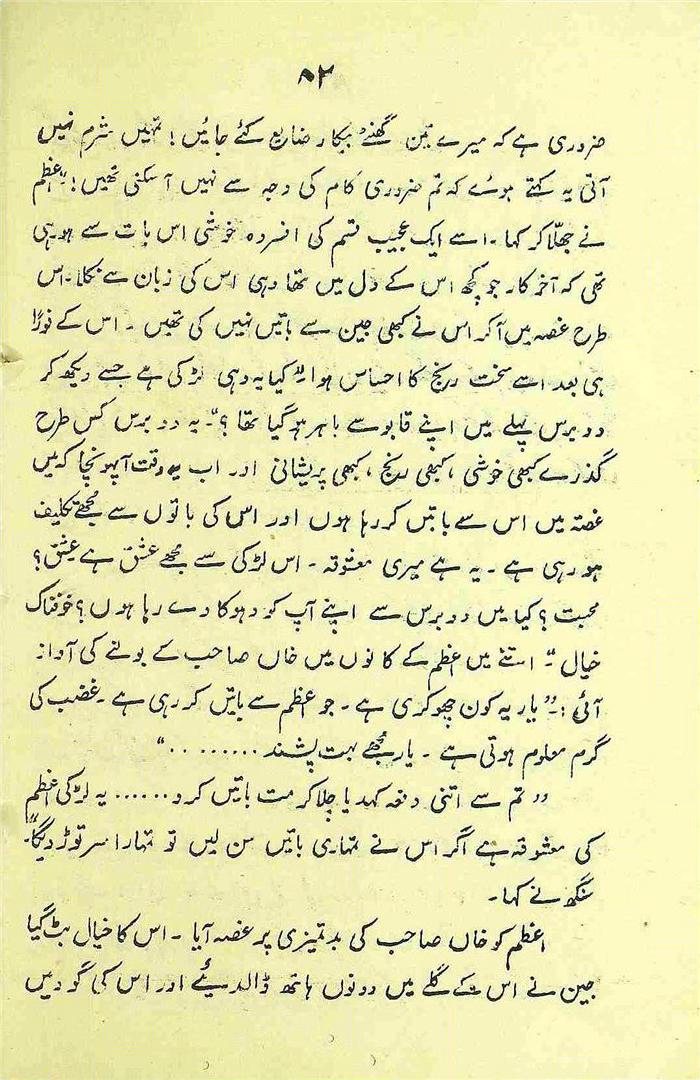 ۸۲
ضروری ہے کہ میرے تین گھنٹے بیکار ضایع کئے جائیں! تمہیں شرم نہیں
آتی یہ کہتے ہوئے کہ تم ضروری کام کی وجہ سے نہیں آسکتی تھیں!" اعظم
نے جھلا کر کہا۔ اسے ایک عجیب قسم کی افسردہ خوشی اس بات سے ہو رہی
تھی کہ آخر کار جو کچھ اس کے دل میں تھا وہی اس کی زبان سے نکلا۔ اس
طرح غصہ میں آکر اس نے کبھی جین سے باتیں نہیں کی تھیں۔ اس کے فوراً
ہی بعد اسے سخت رنج کا احساس ہوا "کیا یہ وہی لڑکی ہے جسے دیکھ کر
دو برس پہلے میں اپنے قابو سے باہر ہو گیا تھا؟"۔ یہ دو برس کس طرح
گذرے کبھی خوشی، کبھی رنج، کبھی پریشانی اور اب یہ وقت آپہونچا کہ میں
غصہ میں اس سے باتیں کر رہا ہوں اور اس کی باتوں سے مجھے تکلیف
ہو رہی ہے۔ یہ ہے میری معشوقہ۔ اس لڑکی سے مجھے عشق ہے عشق؟
محبت؟ کیا میں دو برس سے اپنے آپ کو دھوکا دے رہا ہوں؟ خوفناک
خیال"۔ اتنے میں اعظم کے کانوں میں خاں صاحب کے بولنے کی آواز
آئی:۔ "یار یہ کون چھوکری ہے۔ جو اعظم سے باتیں کر رہی ہے۔ غضب کی
گرم معلوم ہوتی ہے۔ یار مجھے بہت پسند .........."
"تم سے اتنی دفعہ کہدیا چلا کر مت باتیں کرو...... یہ لڑکی اعظم
کی معشوقہ ہے اگر اس نے تمہاری باتیں سن لیں تو تمہارا سر توڑ دیگا"۔
سنگھ نے کہا۔
اعظم کو خاں صاحب کی بدتمیزی پر غصہ آیا۔ اس کا خیال بٹ گیا
جین نے اس کے گلے میں دونوں ہاتھ ڈالدیئے اور اس کی گود میں